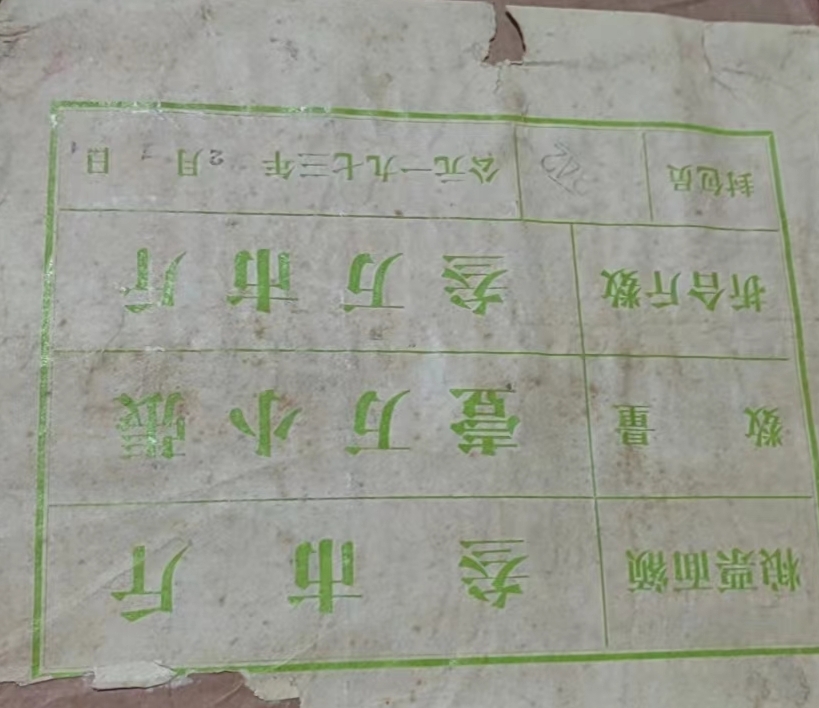 粮票面额 叁市斤
数量 壹万小張
折合斤数 叁万市斤
封包员 公元一九七三年2月 日